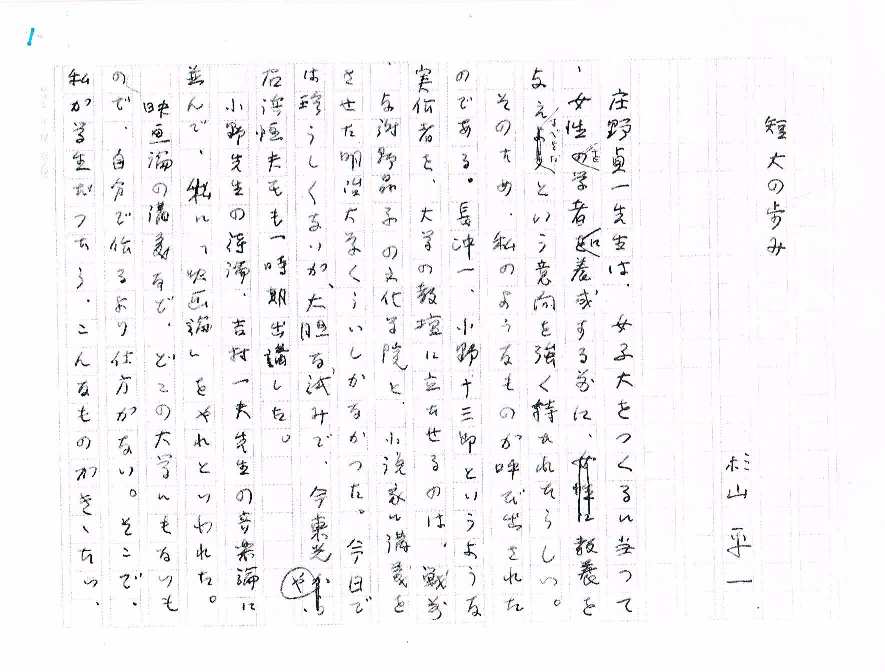 1
短大の歩み
杉山平一
庄野貞一先生は、女子大をつくるに当つて
、女性の学者を養成する前に、女性に教養を
与えるべきだという意向を強く持たれたらしい。
そのため、私のようなものが呼び出された
のである。長沖一、小野十三郎というような
実作者を、大学の教壇に立たせるのは、戦前
、与謝野晶子の文化学院と、小説家に講義を
させた明治大学くらいしかなかつた。今日で
は珍らしくないが、大胆な試みで、今東光や、
石濱恒夫も一時期出講した。
小野先生の詩論、吉村一夫先生の音楽論に
並んで、私に「映画論」をやれといわれた。
映画論の講義など、どこの大学にもないも
ので、自分で作るより仕方がない。そこで、
私が学生だつたら、こんなものがきゝたい、